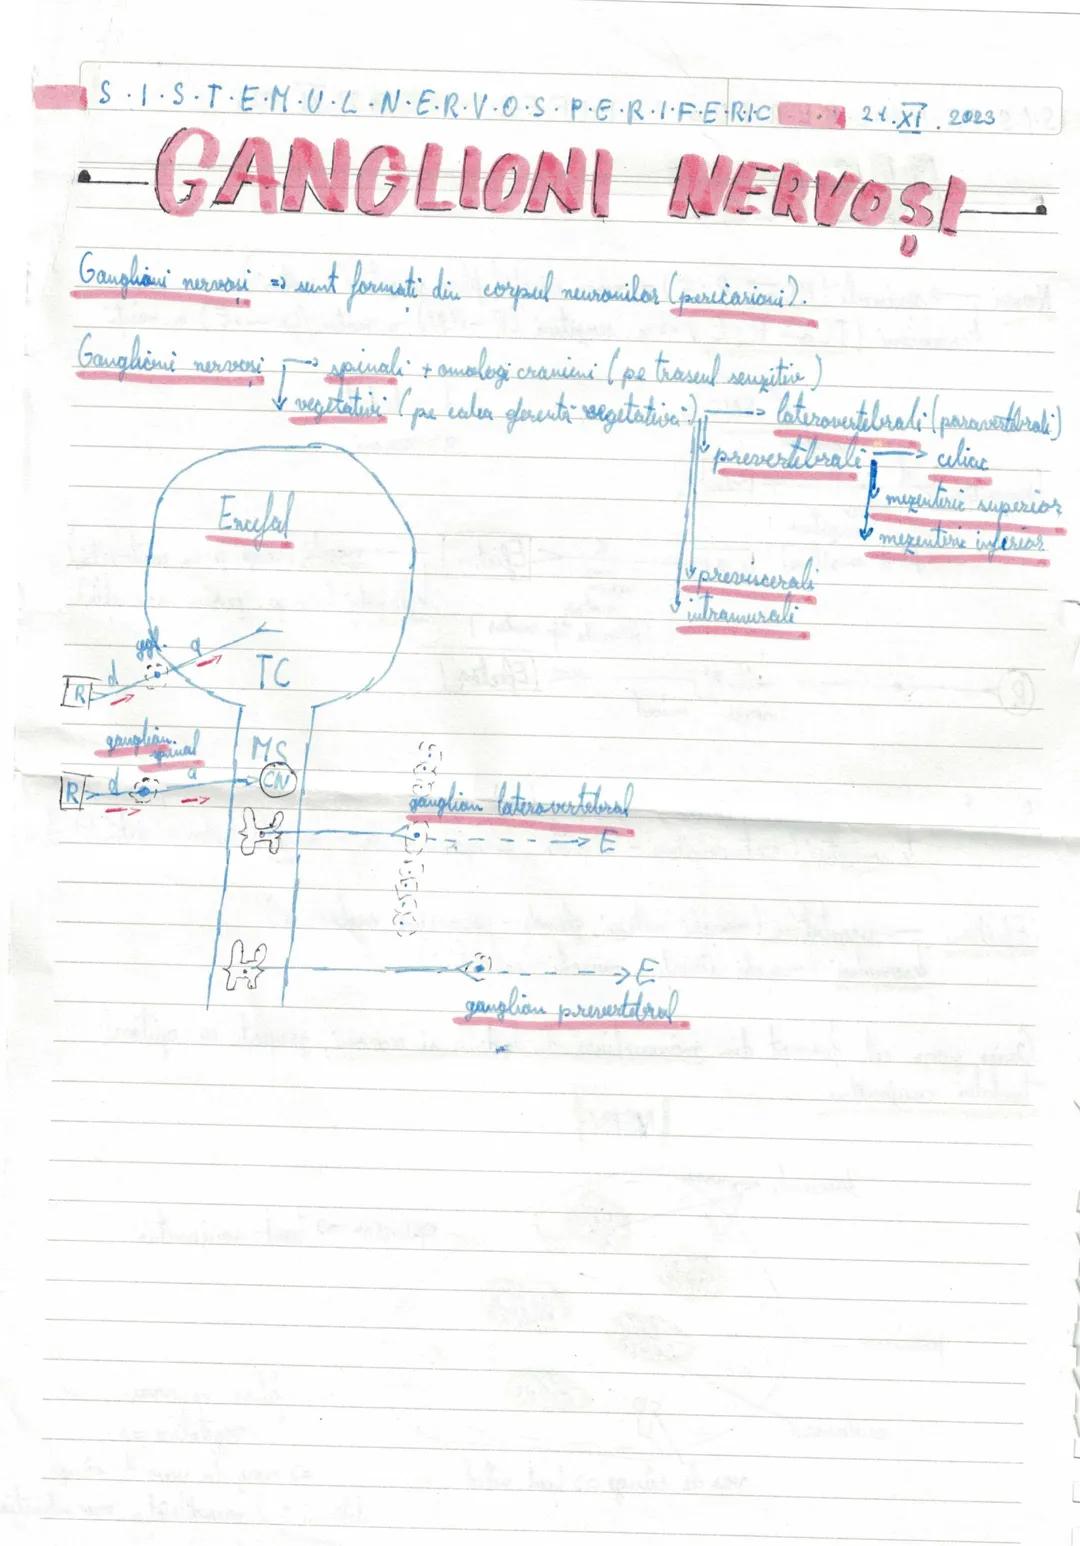 S.I.S.T.E.M.U.L.N.E.R.V.O.S.P.E.R.I.F.E.R.I.C 21.XI.2023
GANGLIONI NERVOȘI
Ganglioni nervoși => sunt formați din corpul neuronilor (pericarioni).
Ganglioni nervoși → spinali + omologi cranieni (pe traseul senzitiv)
vegetativi (pe calea eferentă vegetativă) → laterovertebrali (paravertebrali)
prevertebrali → celiac
mezenteric superior
mezenteric inferior
previscerali
intramurali
Encefal
ggl.
d a
TC
R
ganglion spinal
MS
R d a CN
ganglion laterovertebral
E
E
ganglion prevertebral